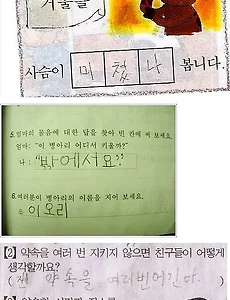 거울을
사슴이 미 쳤 나 봅니다.
5.엄마의 물음에 대한 답을 찾아 빈 칸에 써 보세요.
엄마: "이 병아리 어디서 키울까?"
나: "밖에서요"
6.여러분이 병아리의 이름을 지어 보세요.
이오리
【2】 약속을 여러 번 지키지 않으면 친구들이 어떻게
생각할까요?
약속을 여러번어긴다. )